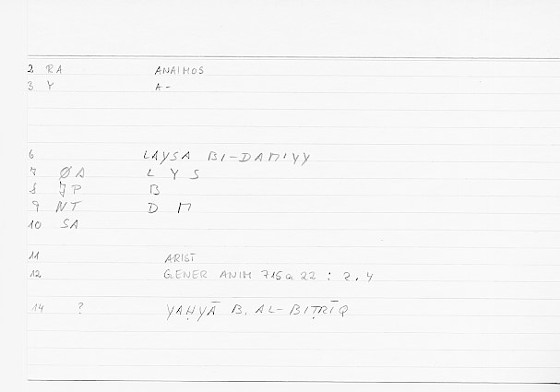 2 RA ANAIMOS
3 Y A-
6 LAYSA BI-DAMIYY
7 ØA L Y S
8 JP B
9 NT D M
10 SA
11 ARIST
12 GENER ANIM 715a 22 : 2.4
14 ? YAḤYĀ B. AL-BIṬRĪQ